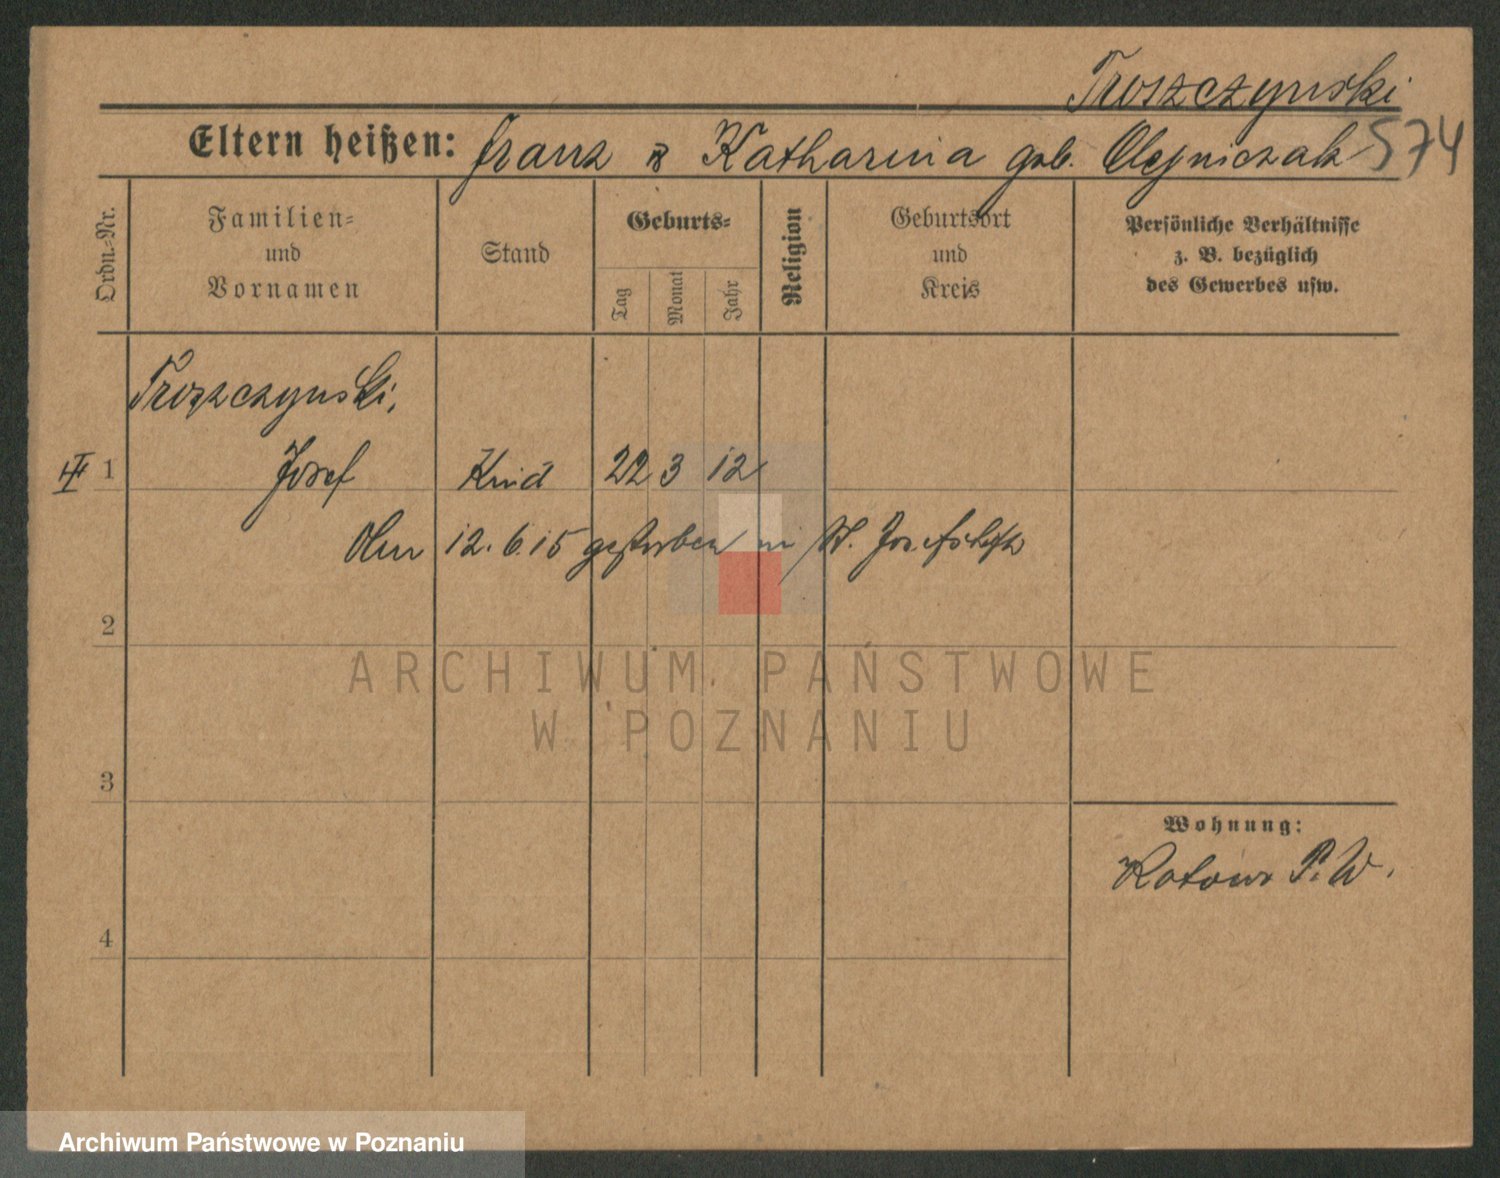 Troszczynski
Eltern heißen: Franz & Katharina geb. Olejniczak 574
Ordn.-Nr.
Familien-
und
Vornamen
Stand
Geburts-
Tag
Monat
Jahr
Religion
Geburtsort
und
Kreis
Persönliche Verhältnisse
z. B. bezüglich
des Gewerbes usw.
Troszczynski,
1 Josef Kind 22 3 12
12. 6. 15 gestorben in St. Josefstift
2
ARCHIWUM PAŃSTWOWE
W POZNANIU
3
Wohnung:
Ratowo P. W.
4
Archiwum Państwowe w Poznaniu